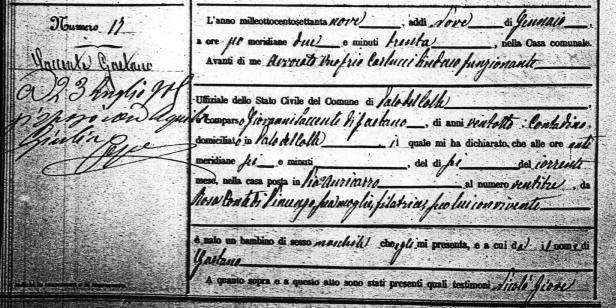 Numero 17
Saccente Gaetano
a 23 Luglio
sposò con
Giulia
L'anno milleottocentosettanta nove, addì Nove di Gennaio,
a ore po meridiane due e minuti trenta, nella Casa comunale.
Avanti di me Avvocato Onofrio Carlucci Sindaco funzionante
Uffiziale dello Stato Civile del Comune di Palo del Colle
è comparso Giovanni Saccente di Gaetano, di anni ventotto, Contadino
domiciliato in Palo del Colle, il quale mi ha dichiarato, che alle ore
meridiane e minuti, del dì del corrente
mese, nella casa posta in Via Auricarro al numero ventitre, da
Rosa Conte di Vincenzo sua moglie, filatrice, seco lui convivente
è nato un bambino di sesso maschile che egli mi presenta, e a cui dà il nome di
Gaetano
A quanto sopra e a questo atto sono stati presenti quali testimoni Nicolò Giove